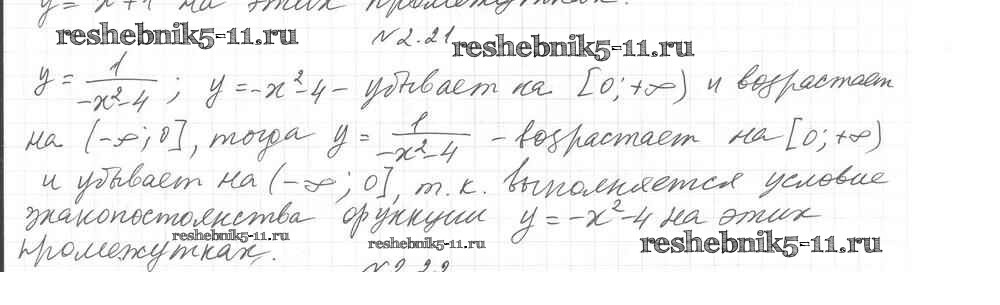 y = x + 1 на этих промежутках.
reshebnik5-11.ru
№ 2.21
reshebnik5-11.ru
y = 1/(-x²-4); y = -x²-4 - убывает на [0;+∞) и возрастает
на (-∞;0], тогда y = 1/(-x²-4) - возрастает на [0;+∞)
и убывает на (-∞;0], т.к. выполняется условие
знакопостоянства функции y = -x²-4 на этих
промежутках.
reshebnik5-11.ru
reshebnik5-11.ru
reshebnik5-11.ru
№ 2.22